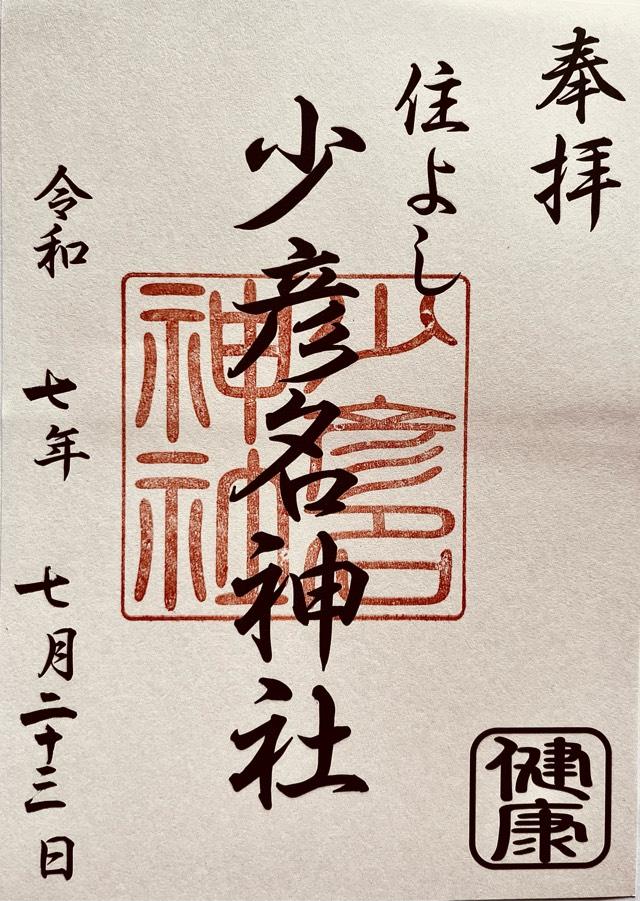 奉拝
住よし
少彦名神社
少彦名
神社
令和 七年 七月二十三日
健康